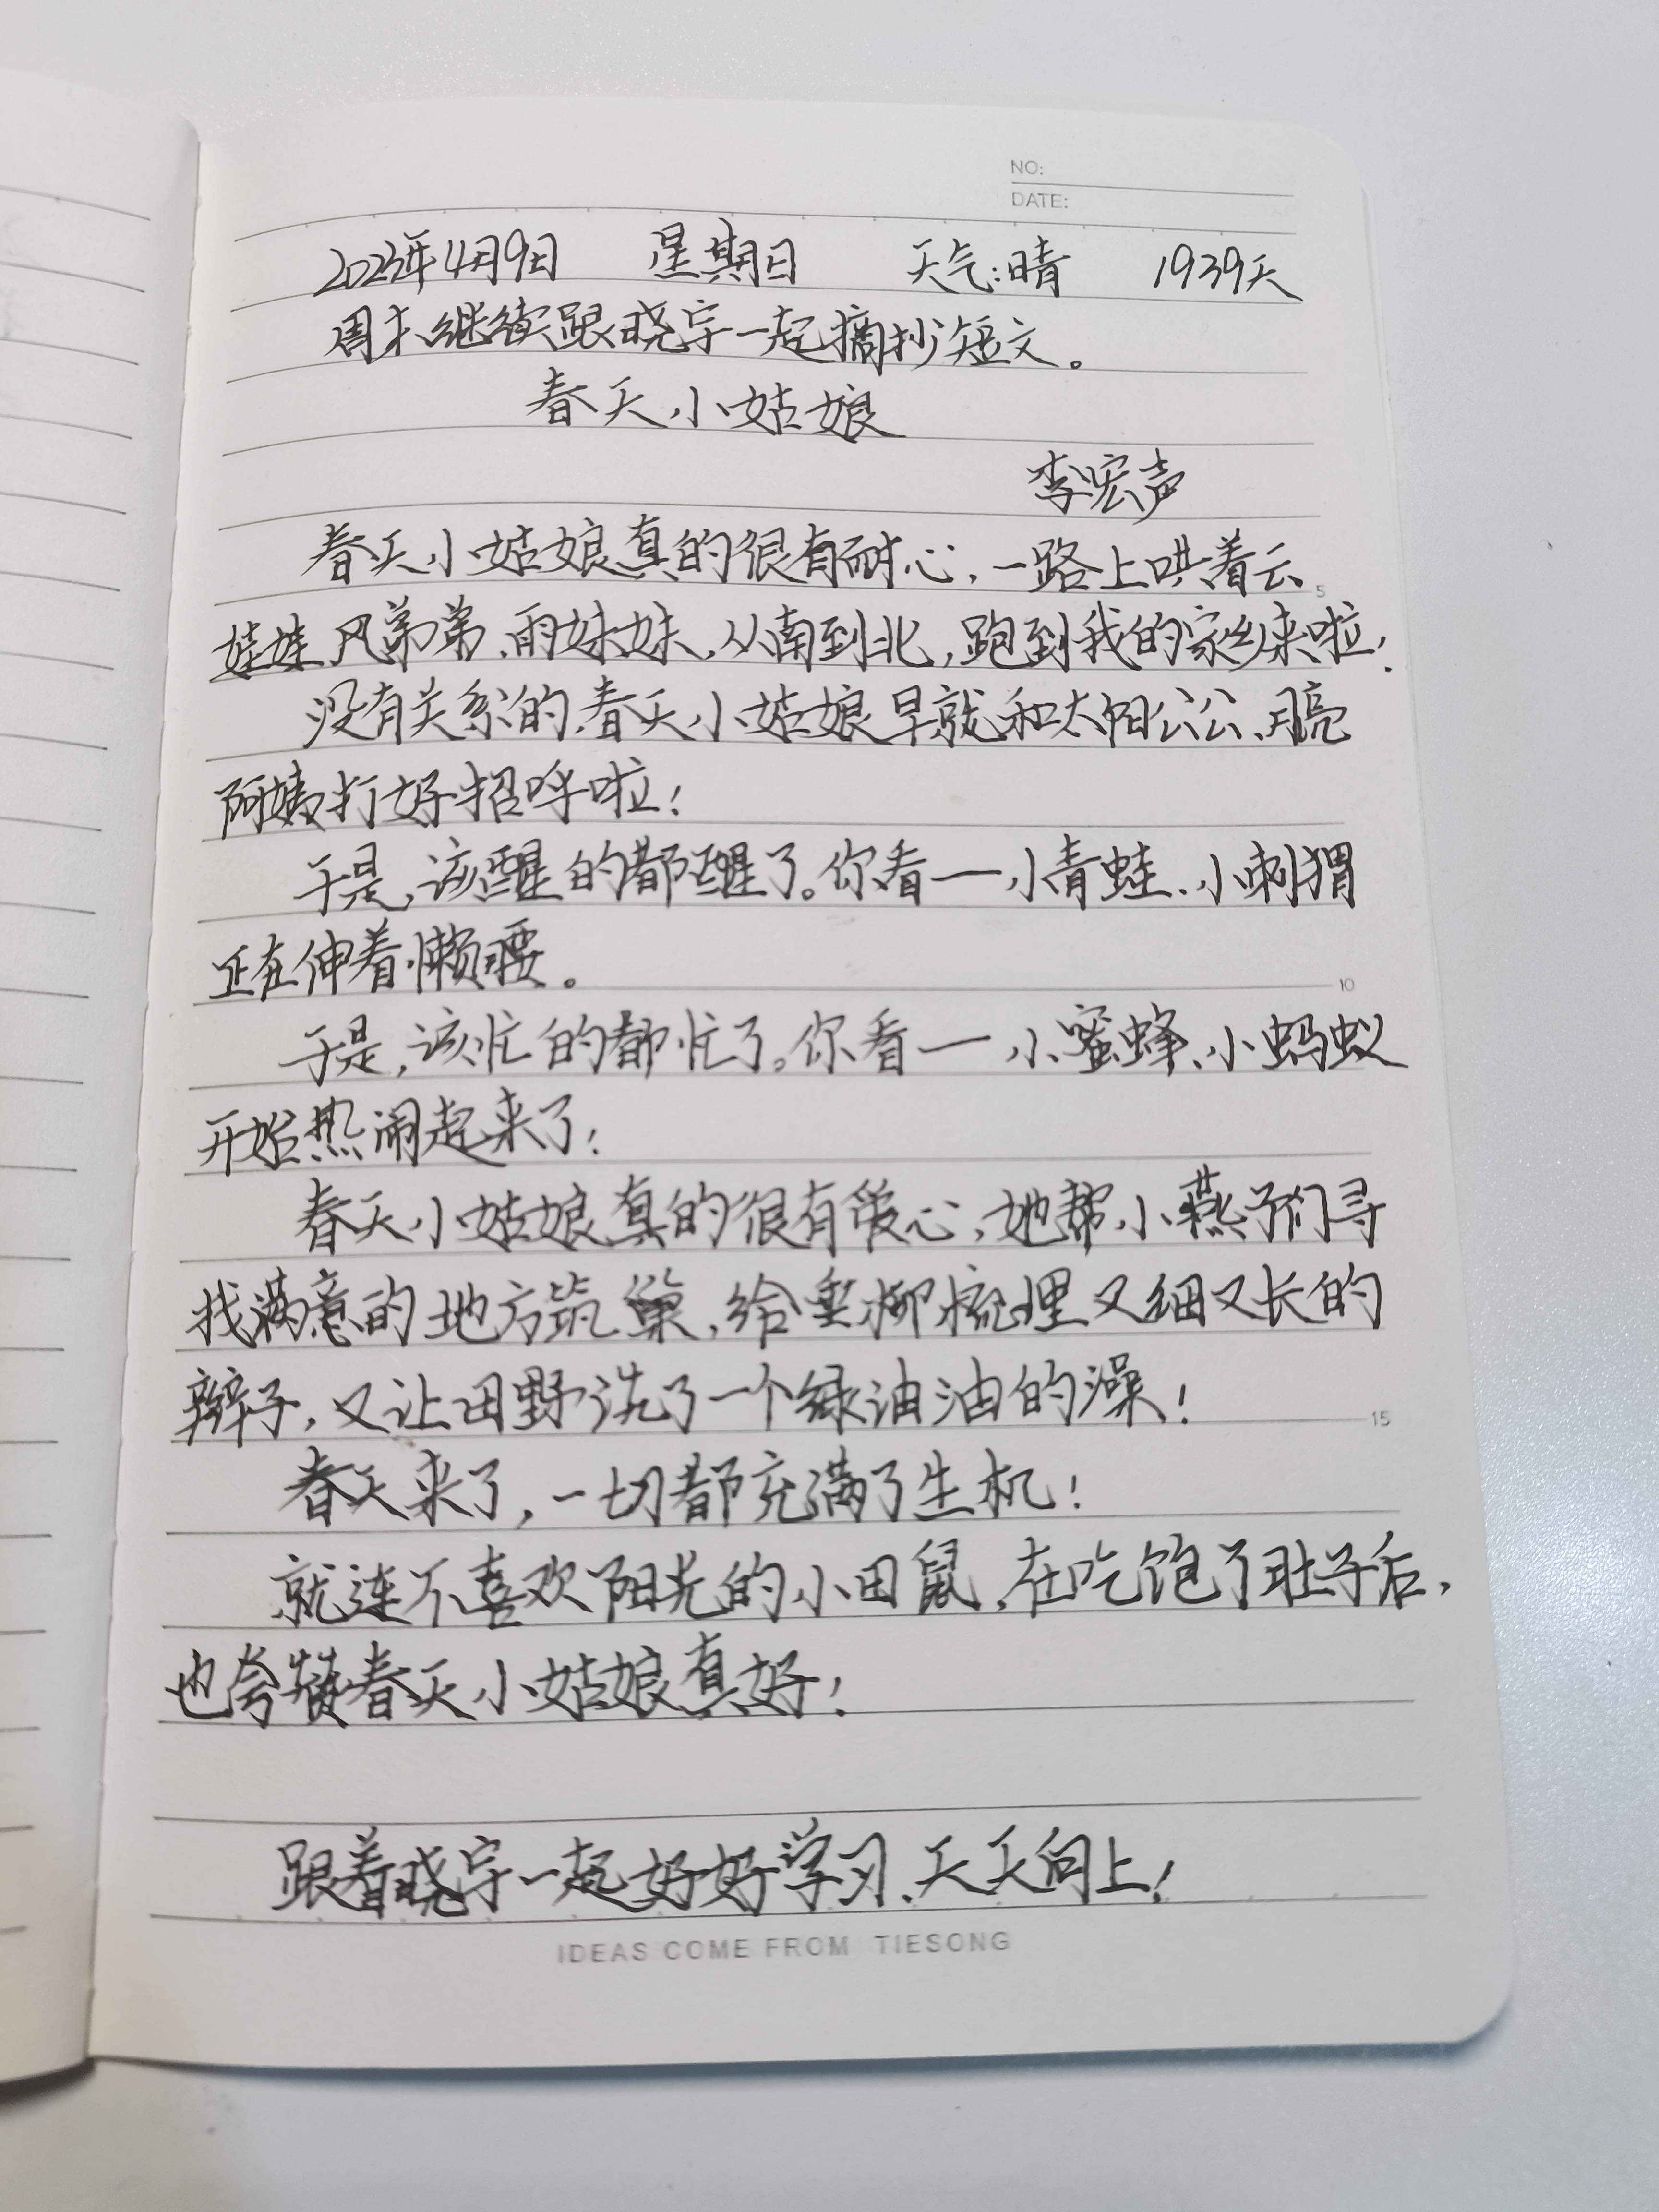 NO:
DATE:
2023年4月9日 星期日 天气:晴 1939天
周末继续跟晓宇一起摘抄短文。
春天小姑娘
李宏声
春天小姑娘真的很有耐心,一路上哄着云
娃娃、风弟弟、雨妹妹,从南到北,跑到我的家乡来啦!
没有关系的,春天小姑娘早就和太阳公公、月亮
阿姨打好招呼啦!
于是,该醒的都醒了。你看——小青蛙、小刺猬
正在伸着懒腰。
于是,该忙的都忙了。你看——小蜜蜂、小蚂蚁
开始热闹起来了!
春天小姑娘真的很有爱心,她帮小燕子们寻
找满意的地方筑巢,给垂柳梳理又细又长的
辫子,又让田野洗了一个绿油油的澡!
春天来了,一切都充满了生机!
就连不喜欢阳光的小田鼠,在吃饱了肚子后,
也会春天小姑娘真好!
跟着晓宇一起好好学习、天天向上!
IDEAS COME FROM TIESONG
5
10
15